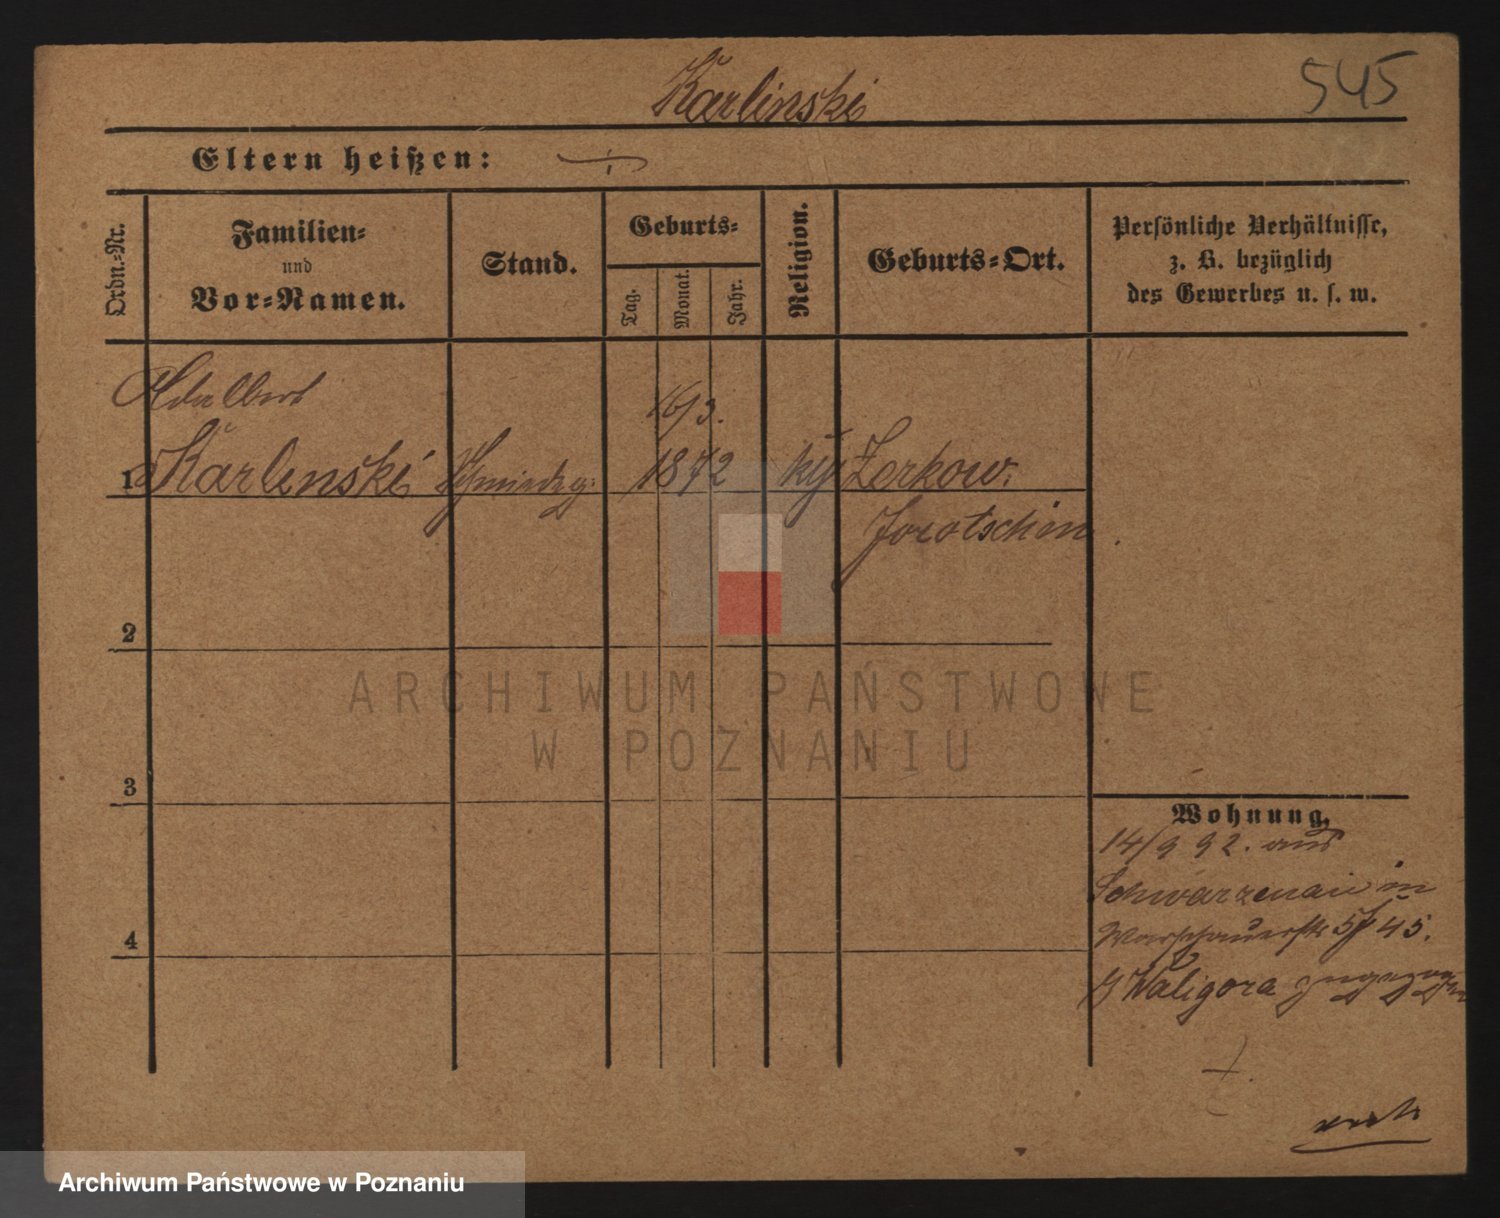 Karlinski
545
Eltern heißen:
Ordn.-Nr.
Familien-
und
Vor-Namen.
Stand.
Geburts-
Tag.
Monat.
Jahr.
Religion.
Geburts-Ort.
Persönliche Verhältnisse,
z. B. bezüglich
des Gewerbes u. s. w.
Adalbert
16/3.
1 Karlinski Schmiedeg: 1872 Zerkow.
Jarotschin
2
3
4
Wohnung.
14/9 92. aus
Schwarzenau in
Warschauerstr 545.
b/ Waligora zugezogen
ARCHIWUM PAŃSTWOWE
W POZNANIU
Archiwum Państwowe w Poznaniu